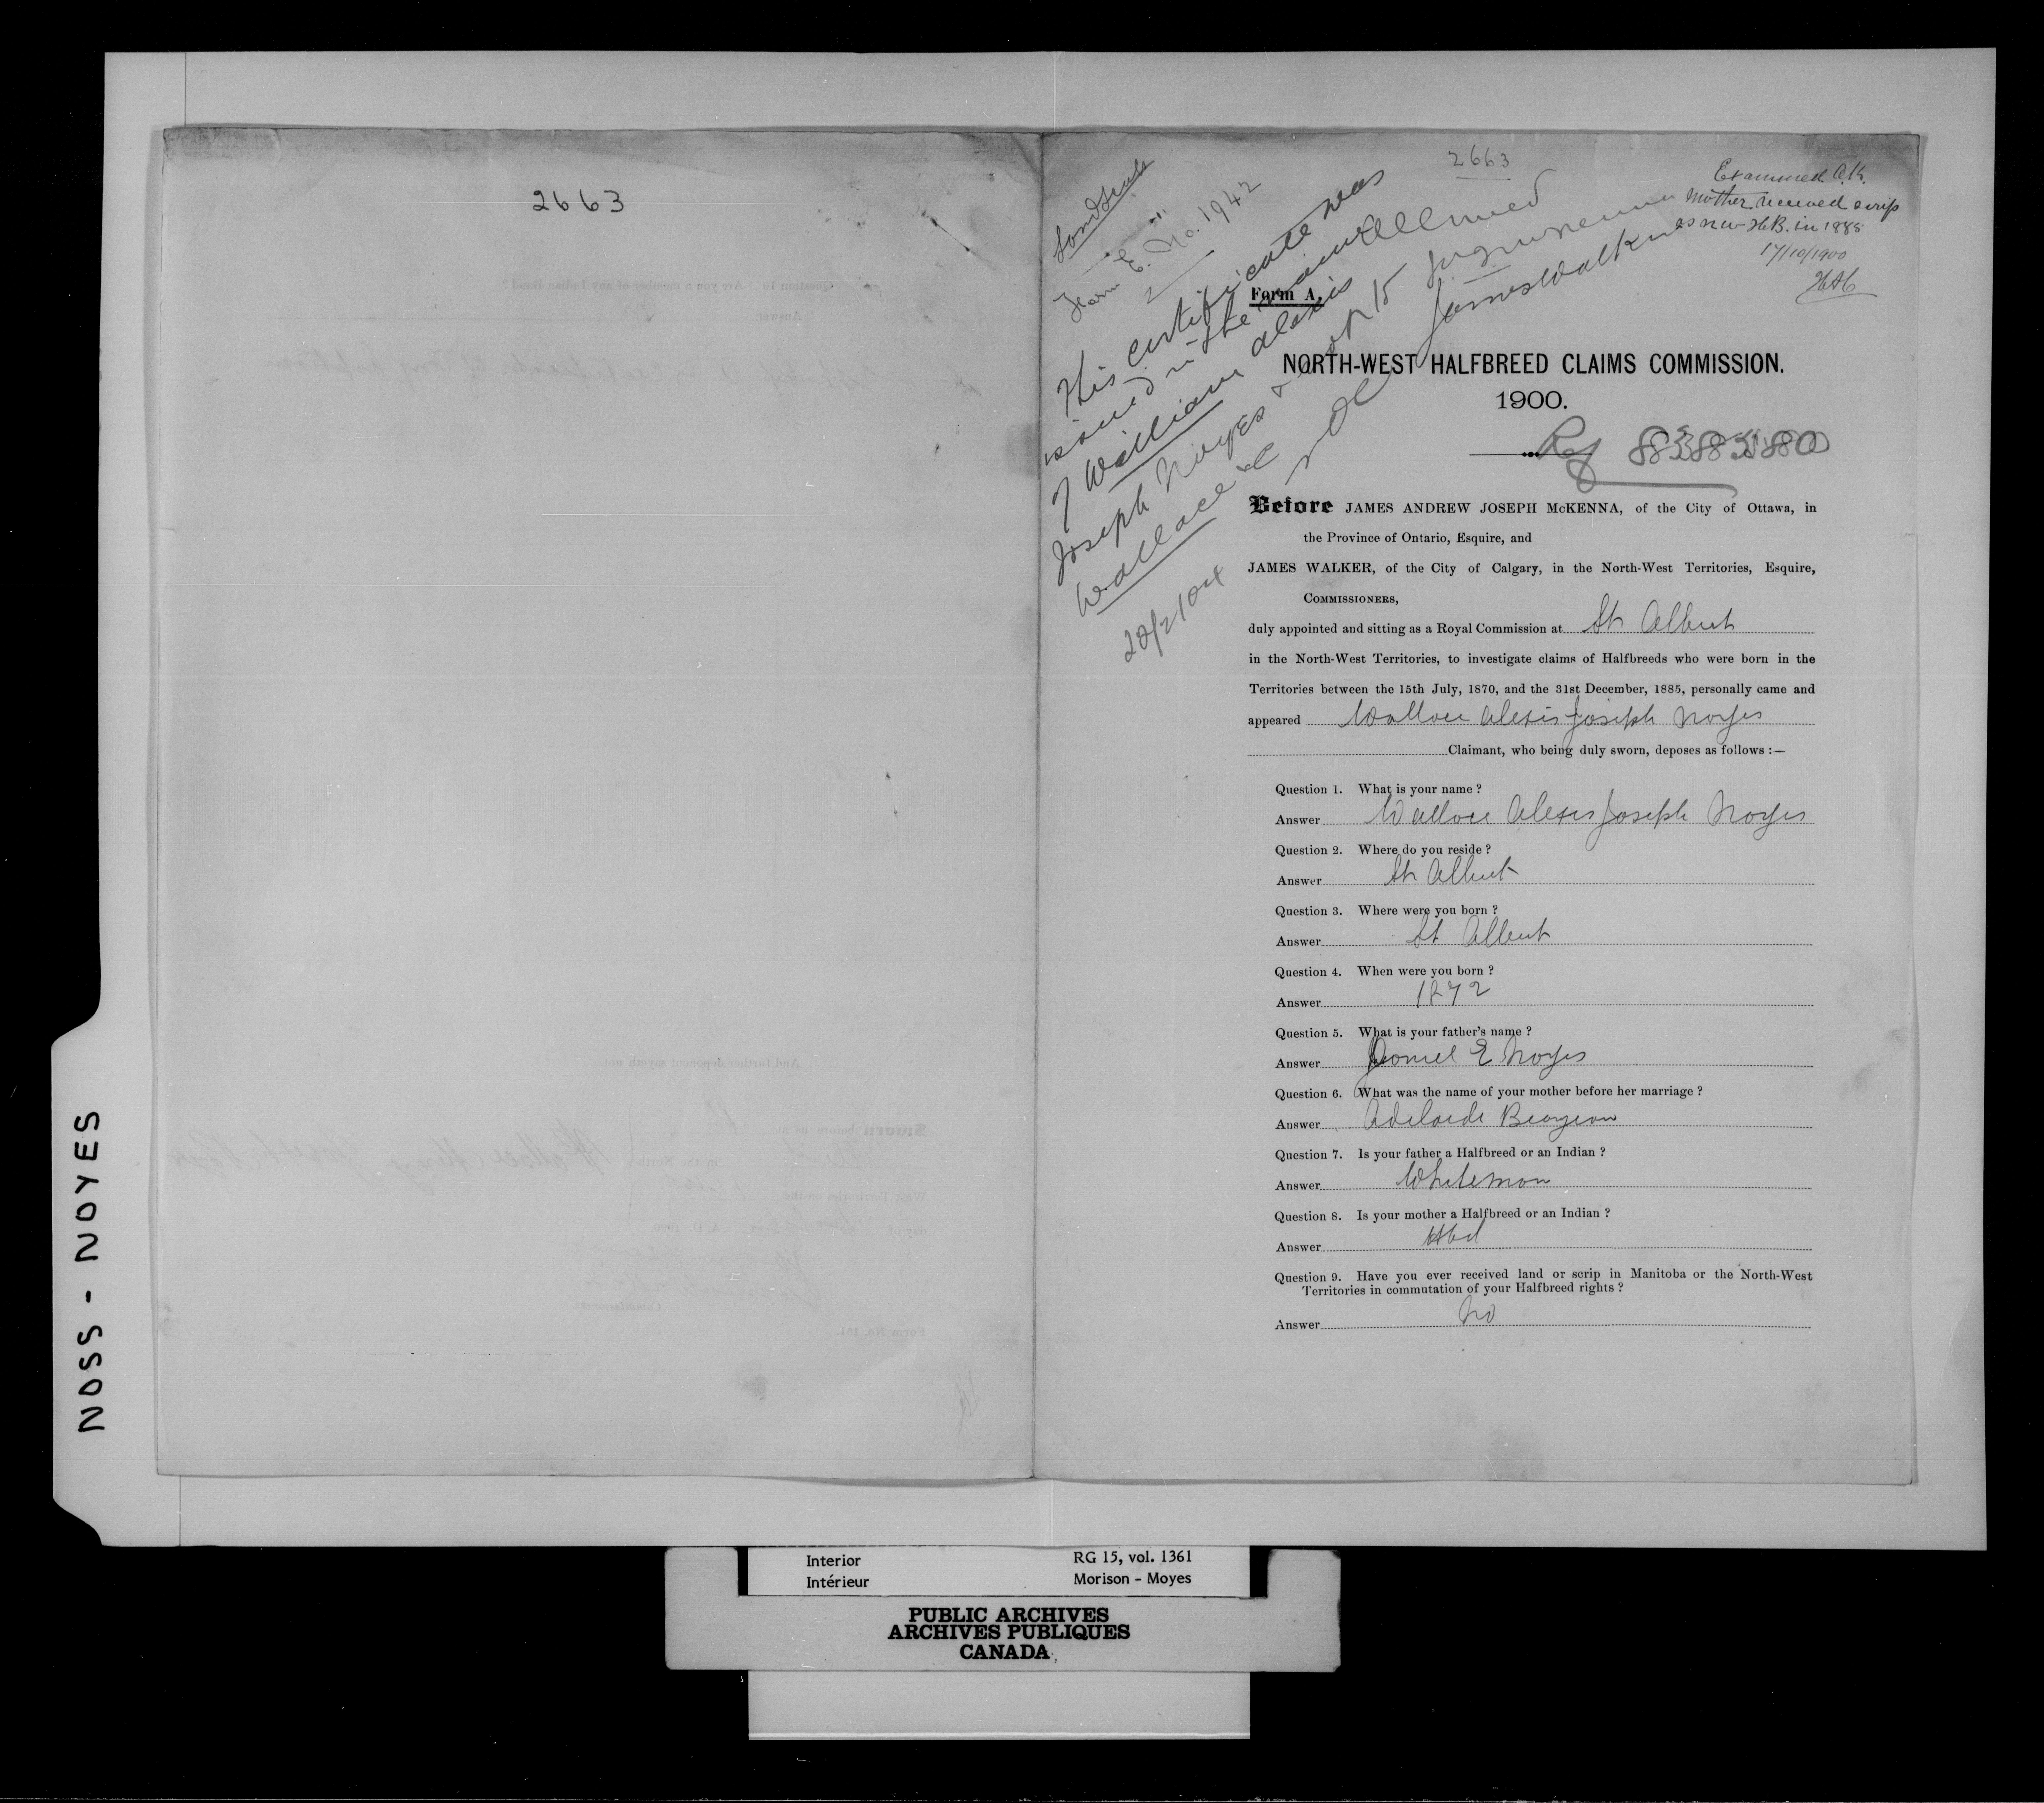 2663
2663
Examined O.K.
Mother received scrip
as N.W. H.B. in 1885
17/10/1900
Form E. No. 1942
His certificate was
issued in the name
of William Alexis
Joseph Noyes
Wallace
James Walker
Form A.
NORTH-WEST HALFBREED CLAIMS COMMISSION.
1900.
Ref
Before JAMES ANDREW JOSEPH McKENNA, of the City of Ottawa, in
the Province of Ontario, Esquire, and
JAMES WALKER, of the City of Calgary, in the North-West Territories, Esquire,
COMMISSIONERS,
duly appointed and sitting as a Royal Commission at St Albert
in the North-West Territories, to investigate claims of Halfbreeds who were born in the
Territories between the 15th July, 1870, and the 31st December, 1885, personally came and
appeared Wallace Alexis Joseph Noyes
Claimant, who being duly sworn, deposes as follows :—
Question 1. What is your name ?
Answer Wallace Alexis Joseph Noyes
Question 2. Where do you reside ?
Answer St Albert
Question 3. Where were you born ?
Answer St Albert
Question 4. When were you born ?
Answer 1872
Question 5. What is your father's name ?
Answer Daniel E Noyes
Question 6. What was the name of your mother before her marriage ?
Answer Adelaide
Question 7. Is your father a Halfbreed or an Indian ?
Answer Whiteman
Question 8. Is your mother a Halfbreed or an Indian ?
Answer
Question 9. Have you ever received land or scrip in Manitoba or the North-West
Territories in commutation of your Halfbreed rights ?
Answer No
NOSS - NOYES
Interior RG 15, vol. 1361
Intérieur Morison - Moyes
PUBLIC ARCHIVES
ARCHIVES PUBLIQUES
CANADA